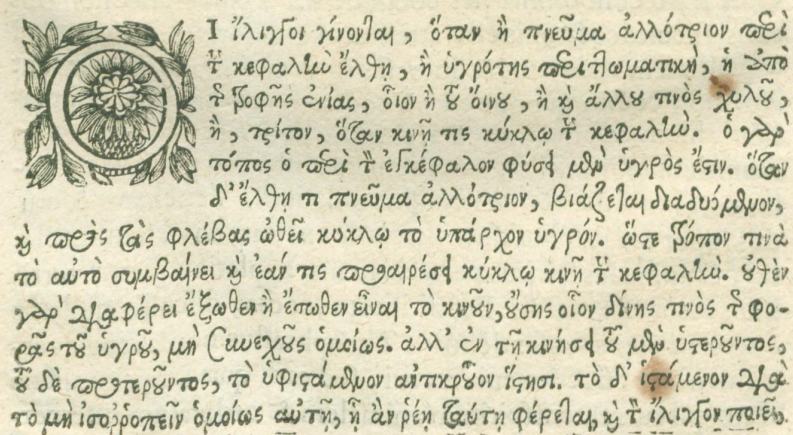 ΟΙ ἴλιγγοι γίνονται, ὅταν ἢ πνεῦμα ἀλλότριον περὶ
τὴν κεφαλὴν ἔλθῃ, ἢ ὑγρότης περιττωματικὴ, ἢ ἀπὸ
τροφῆς ἐνίας, οἷον ἢ τοῦ οἴνου, ἢ καὶ ἄλλου τινὸς χυλοῦ,
ἢ, τρίτον, ὅταν κινῇ τις κύκλῳ τὴν κεφαλὴν. ὁ γὰρ
τόπος ὁ περὶ τὸν ἐγκέφαλον φύσει μὲν ὑγρὸς ἐστιν. ὅταν
δ᾽ ἔλθῃ τι πνεῦμα ἀλλότριον, βιάζεται διαδυόμενον,
καὶ πρὸς τὰς φλέβας ὠθεῖ κύκλῳ τὸ ὑπάρχον ὑγρόν. ὥστε τρόπον τινὰ
τὸ αὐτὸ συμβαίνει καὶ ἐάν τις προαιρέσει κύκλῳ κινῇ τὴν κεφαλὴν. οὐθὲν
γὰρ διαφέρει ἔξωθεν ἢ ἔσωθεν εἶναι τὸ κινοῦν, οὔσης οἷον δίνης τινὸς τῆς φο-
ρᾶς τοῦ ὑγροῦ, μὴ συνεχοῦς ὁμοίως. ἀλλ᾽ ἐν τῇ κινήσει τοῦ μὲν ὑστεροῦντος,
τοῦ δὲ προτεροῦντος, τὸ ὑφιστάμενον ἀντικροῦον ἵστησι. τὸ δ᾽ ἱστάμενον διὰ
τὸ μὴ ἰσορροπεῖν ὁμοίως αὐτῇ, ᾗ ἂν ῥέπῃ ταύτῃ φέρεται, καὶ τὸν ἴλιγγον ποιεῖ.